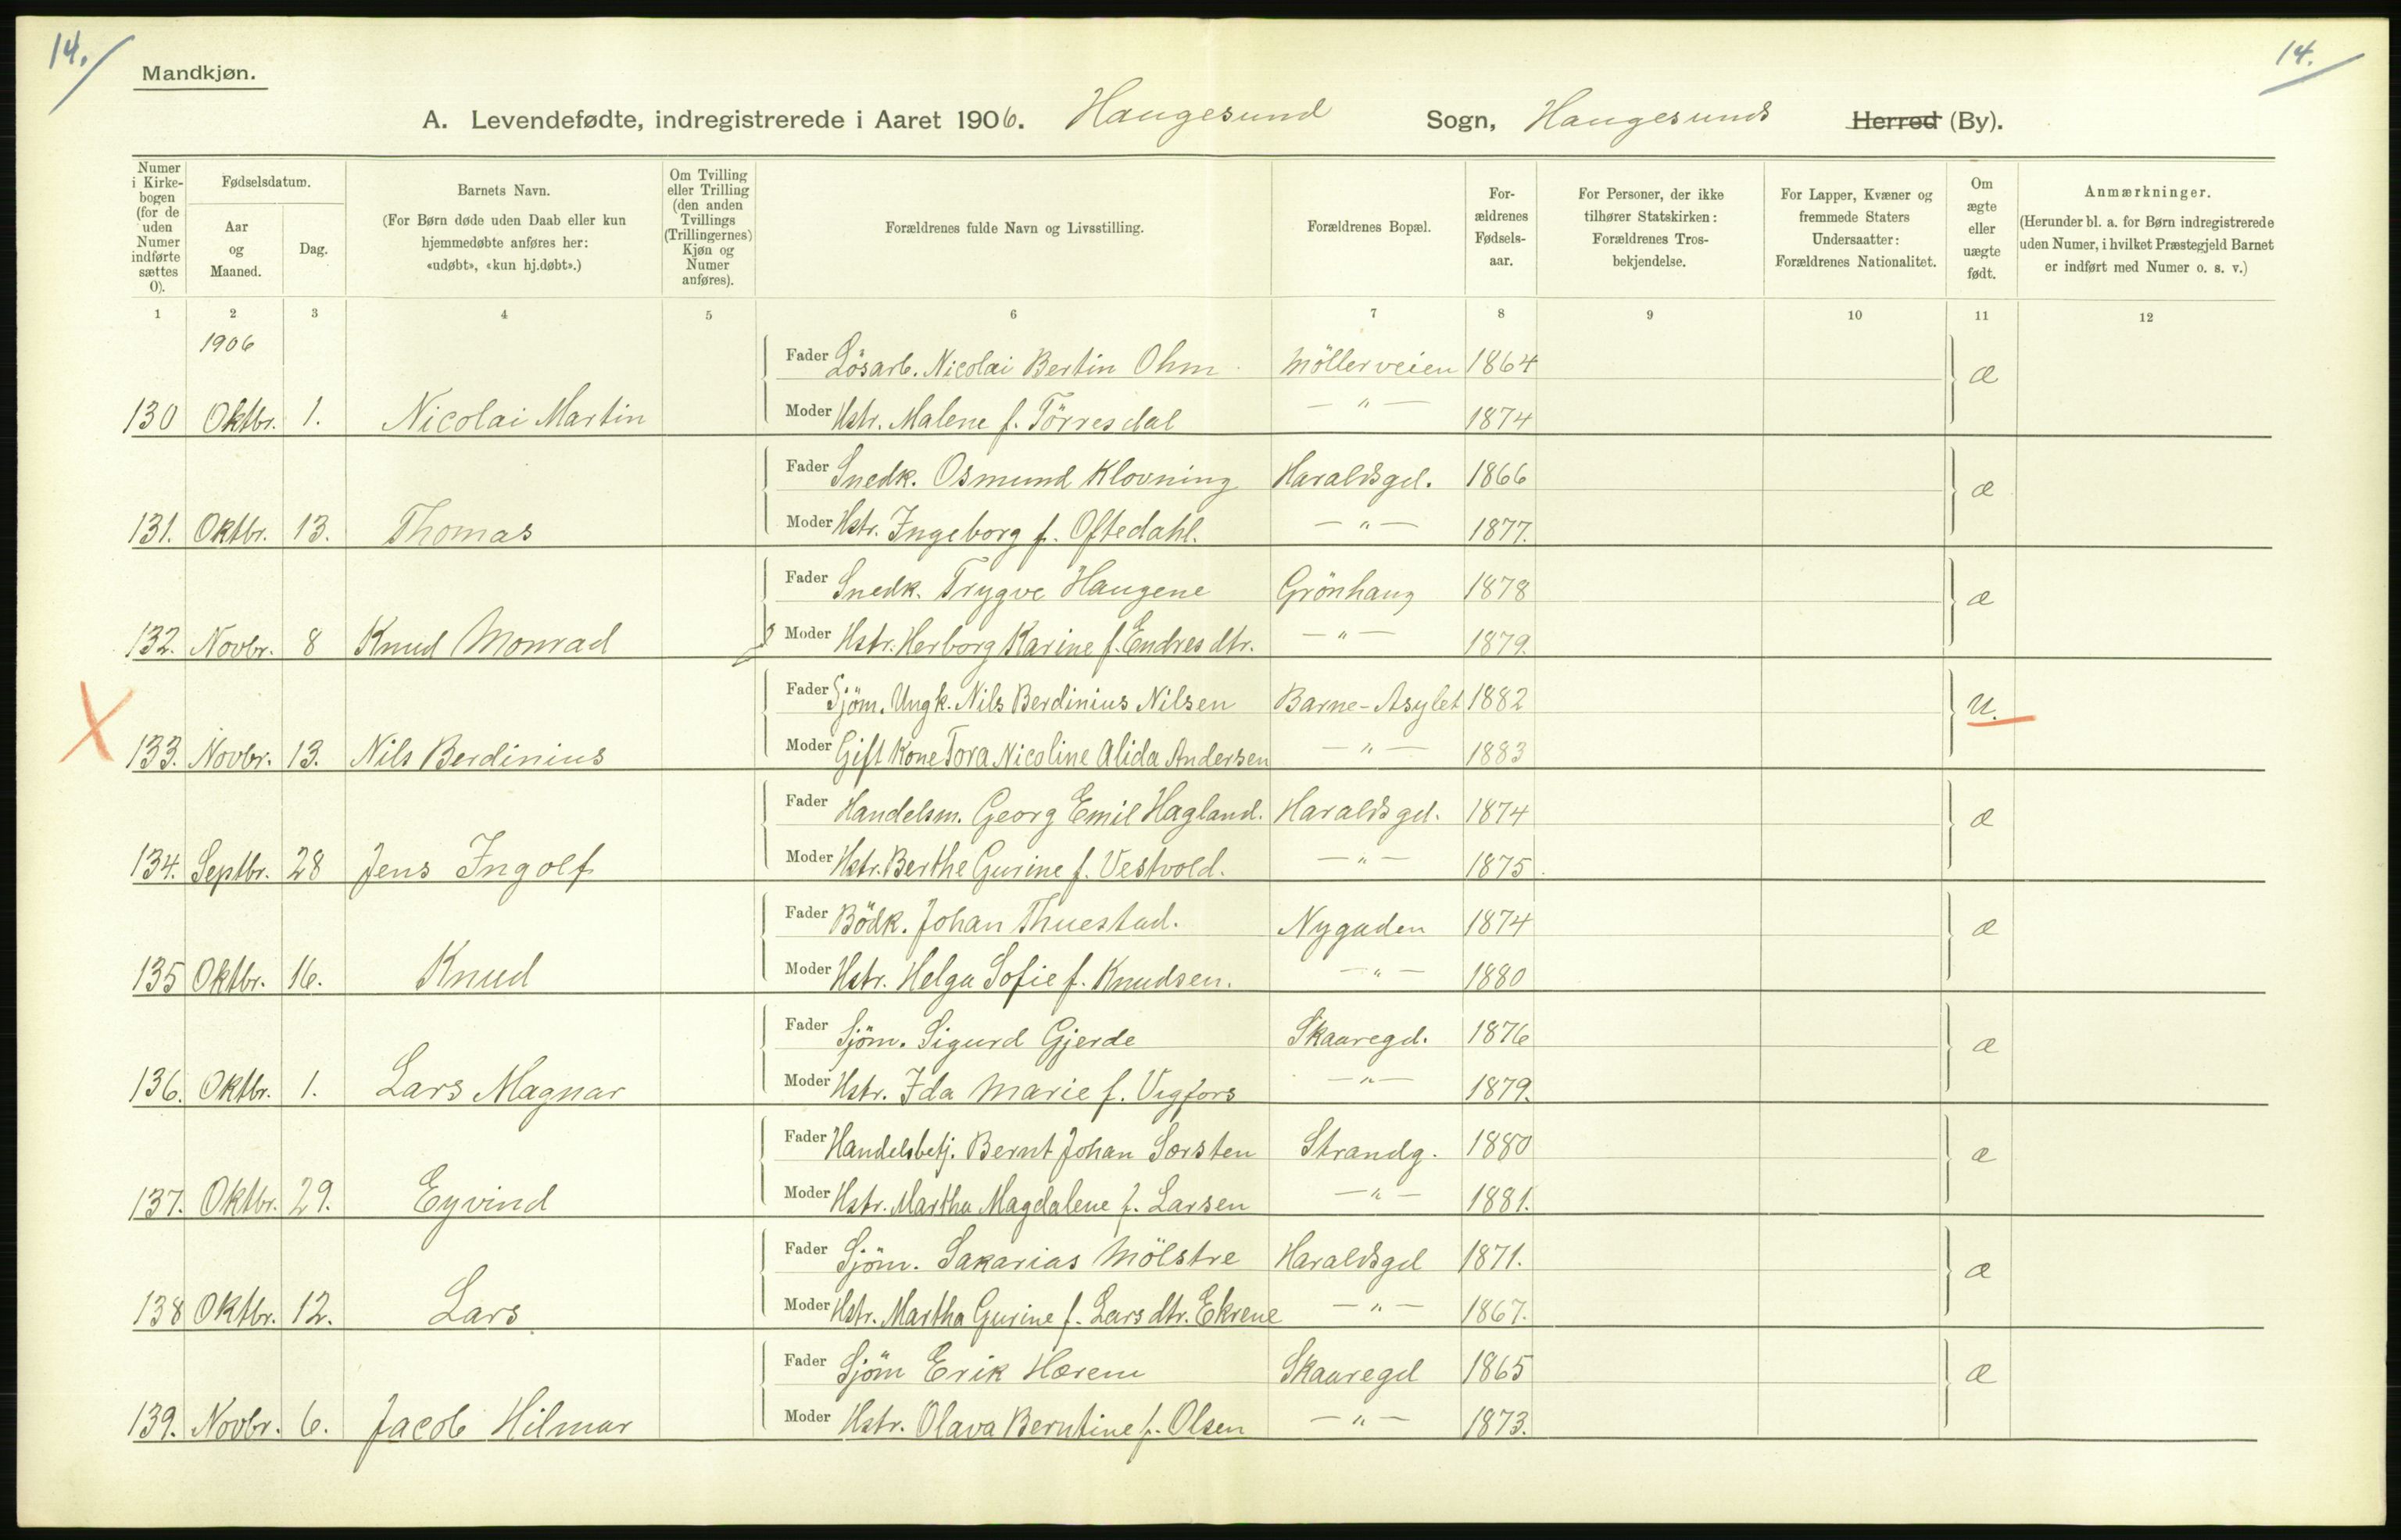 14.
14.
Mandkjøn.
A. Levendefødte, indregistrerede i Aaret 1906. Haugesund Sogn, Haugesunds Herred (By).
Numer i Kirke-bogen (for de uden Numer indførte sættes 0).
Fødselsdatum.
Aar og Maaned.
Dag.
Barnets Navn.
(For Børn døde uden Daab eller kun hjemmedøbte anføres her: «udøbt», «kun hj.døbt».)
Om Tvilling eller Trilling (den anden Tvillings (Trillingernes) Kjøn og Numer anføres).
Forældrenes fulde Navn og Livsstilling.
Forældrenes Bopæl.
For-ældrenes Fødsels-aar.
For Personer, der ikke tilhører Statskirken: Forældrenes Tros-bekjendelse.
For Lapper, Kvæner og fremmede Staters Undersaatter: Forældrenes Nationalitet.
Om ægte eller uægte født.
Anmærkninger.
(Herunder bl. a. for Børn indregistrerede uden Numer, i hvilket Præstegjeld Barnet er indført med Numer o. s. v.)
1 2 3 4 5 6 7 8 9 10 11 12
1906
Fader Lösarb. Nicolai Bertin Ohm Möllerveien 1864 æ
130 Oktbr. 1. Nicolai Martin Moder Hstr. Malene f. Törresdal — " — 1874
Fader Snedk. Osmund Klovning Haraldsgd. 1866 æ
131. Oktbr. 13. Thomas Moder Hstr. Ingeborg f. Oftedahl. — " — 1877.
Fader Snedk. Trygve Haugene Grönhaug 1878 æ
132. Novbr. 8 Knud Monrad Moder Hstr. Herborg Karine f. Endresdtr. — " — 1879.
Fader Sjöm. Ungk. Nils Berdinius Nilsen Barne-Asylet 1882 u.
133. Novbr. 13. Nils Berdinius Moder Gift Kone Tora Nicoline Alida Andersen — " — 1883
Fader Handelsm. Georg Emil Hagland. Haraldsgd. 1874 æ
134. Septbr. 28 Jens Ingolf Moder Hstr. Berthe Gurine f. Vestvold. — " — 1875.
Fader Bödk. Johan Thuestad. Nygaden 1874 æ
135 Oktbr. 16. Knud Moder Hstr. Helga Sofie f. Knudsen. — " — 1880
Fader Sjöm. Sigurd Gjerde Skaaregd. 1876 æ
136. Oktbr. 1. Lars Magnar Moder Hstr. Ida Marie f. Vigfors — " — 1879.
Fader Handelsbetj. Bernt Johan Sørsten Strandg. 1880 æ
137. Oktbr. 29. Eyvind Moder Hstr. Martha Magdalene f. Larsen — " — 1881.
Fader Sjöm. Sakarias Mölstre Haraldsgd 1871. æ
138 Oktbr. 12. Lars Moder Hstr. Martha Gurine f. Larsdtr. Ekrene — " — 1867.
Fader Sjöm Erik Hærem Skaaregd 1865 æ
139. Novbr. 6. Jacob Hilmar Moder Hstr. Olava Berntine f. Olsen — " — 1873.